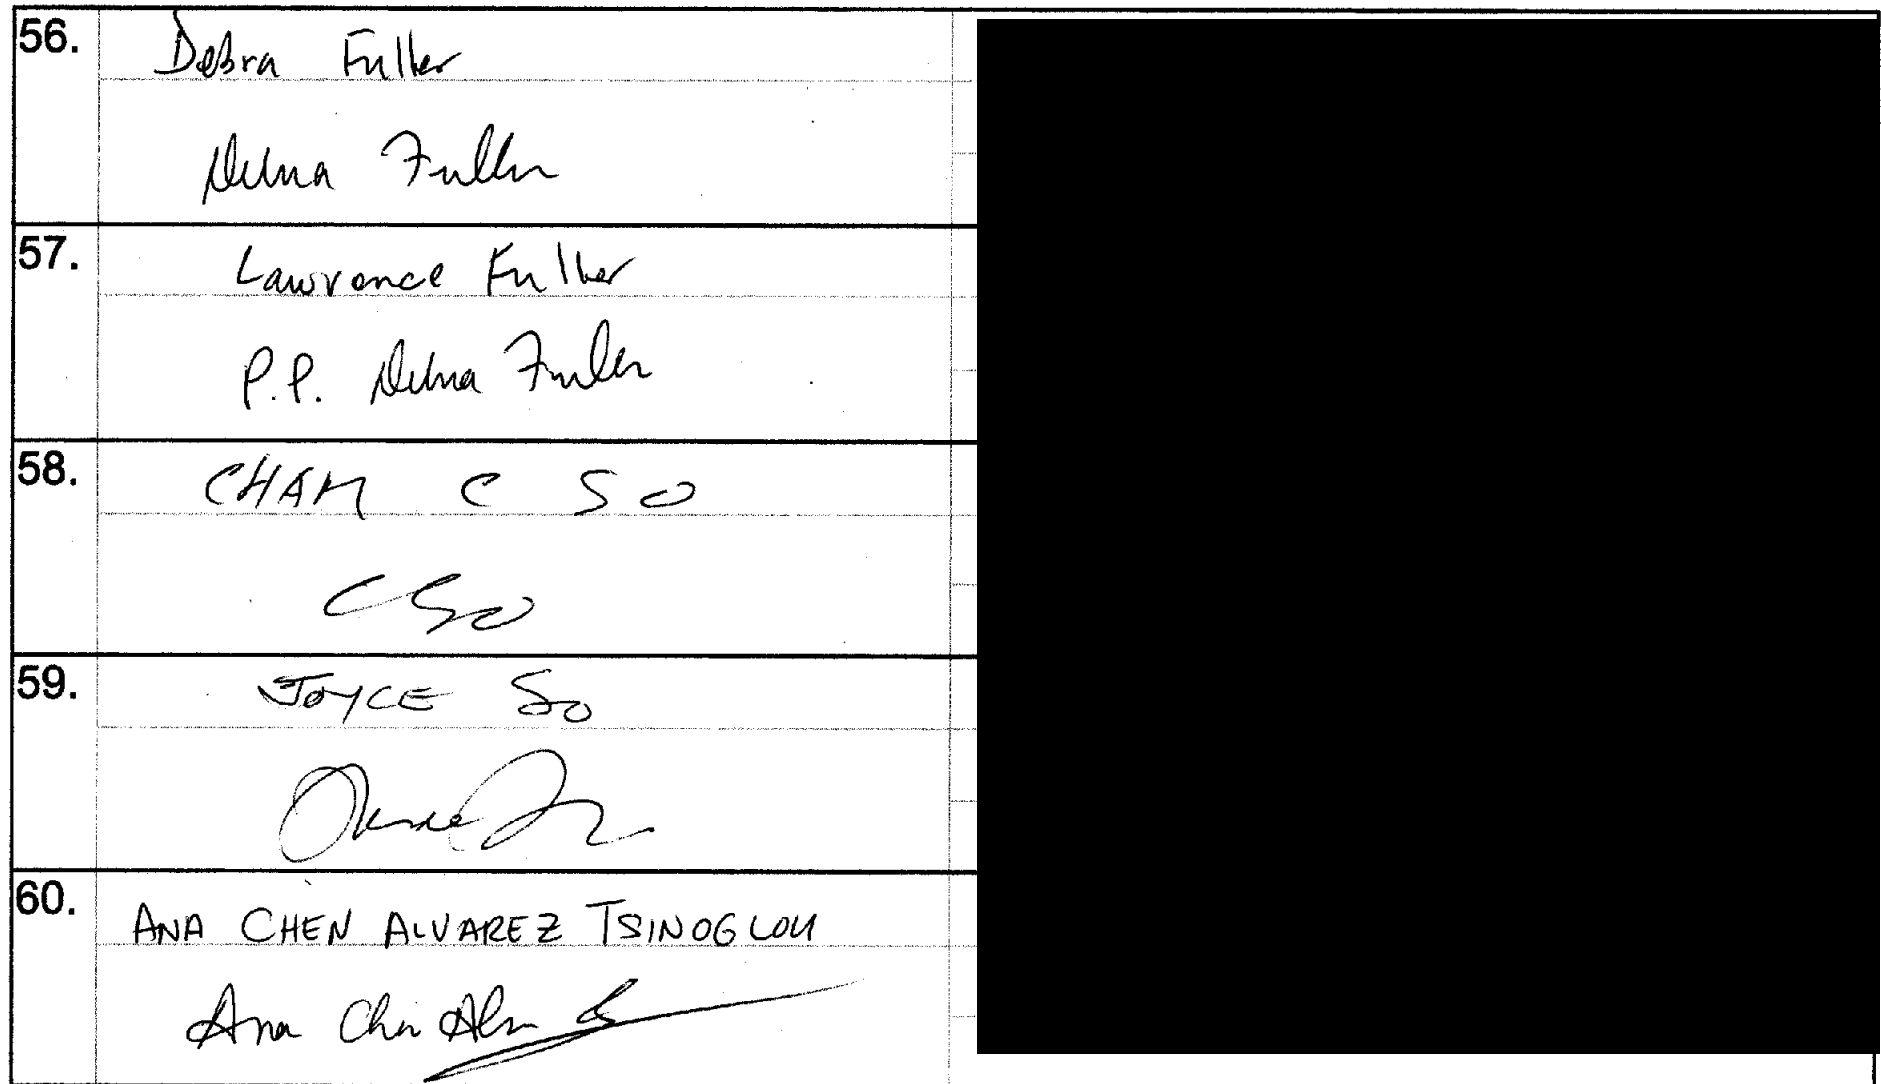 56.
Debra Fuller
Debra Fuller
57.
Lawrence Fuller
P.P. Debra Fuller
58.
CHAM C SO
C So
59.
JOYCE So
60.
ANA CHEN ALVAREZ TSINOGLOU
Ana Chen